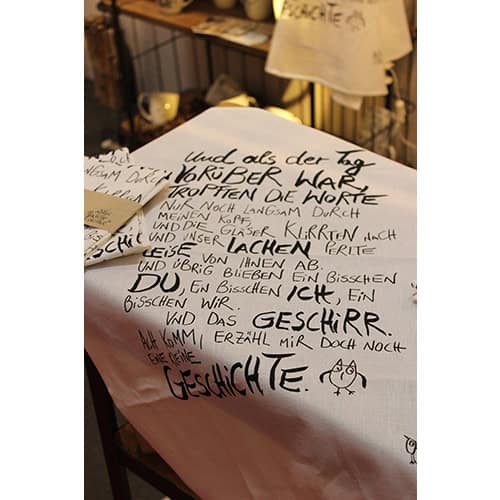 GESCHICHTE
Und als der Tag
VORÜBER WAR,
TROPFTEN DIE WORTE
NUR NOCH LANGSAM DURCH
MEINEN KOPF,
UND DIE GLÄSER KLIRRTEN NACH
UND UNSER LACHEN PERLTE
LEISE VON IHNEN AB.
UND ÜBRIG BLIEBEN EIN BISSCHEN
DU, EIN BISSCHEN ICH, EIN
BISSCHEN WIR.
UND DAS GESCHIRR.
ACH KOMM, ERZÄHL MIR DOCH NOCH
EINE KLEINE
GESCHICHTE.
LANGSAM DURCH
KLIRRTEN